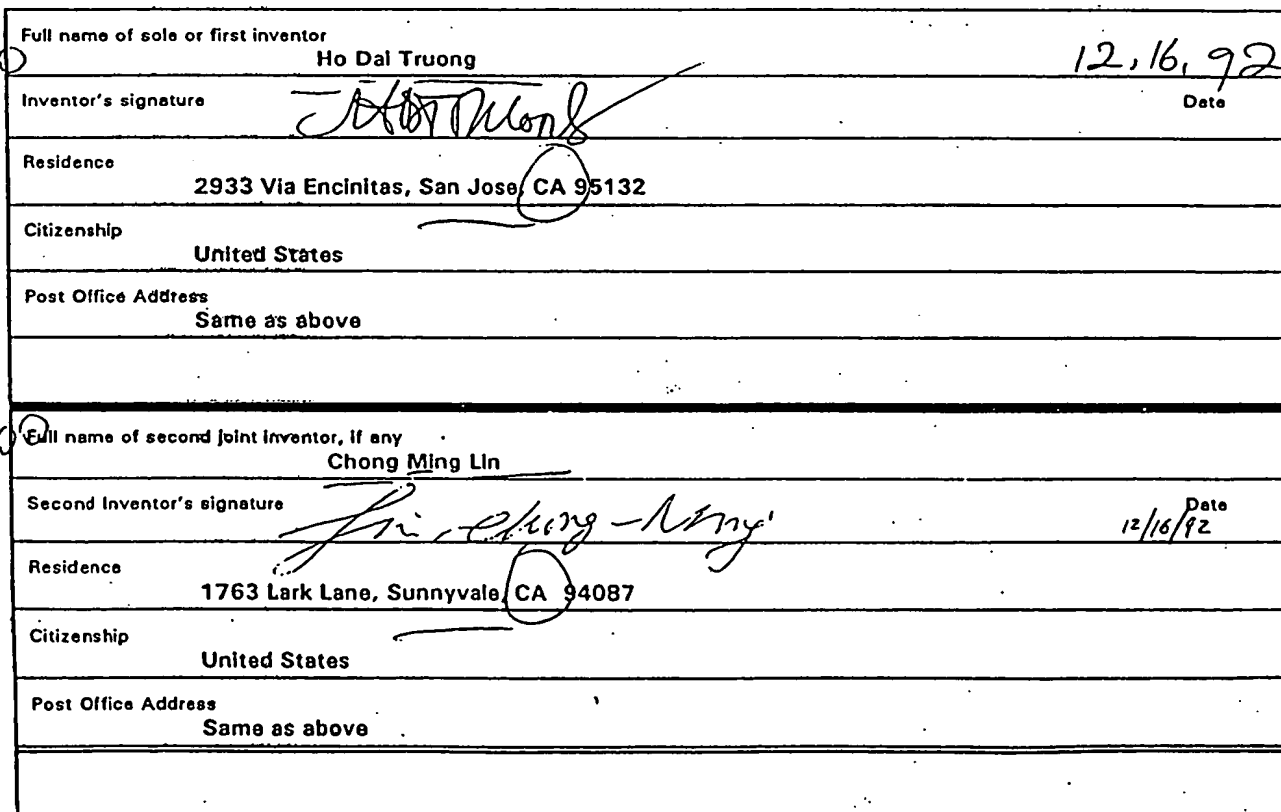 Full name of sole or first inventor
Ho Dai Truong
12, 16, 92
Inventor's signature
Date
Residence
2933 Via Encinitas, San Jose, CA 95132
Citizenship
United States
Post Office Address
Same as above
Full name of second joint inventor, if any
Chong Ming Lin
Second Inventor's signature
Lin, Chong-Ming
Date
12/16/92
Residence
1763 Lark Lane, Sunnyvale, CA 94087
Citizenship
United States
Post Office Address
Same as above